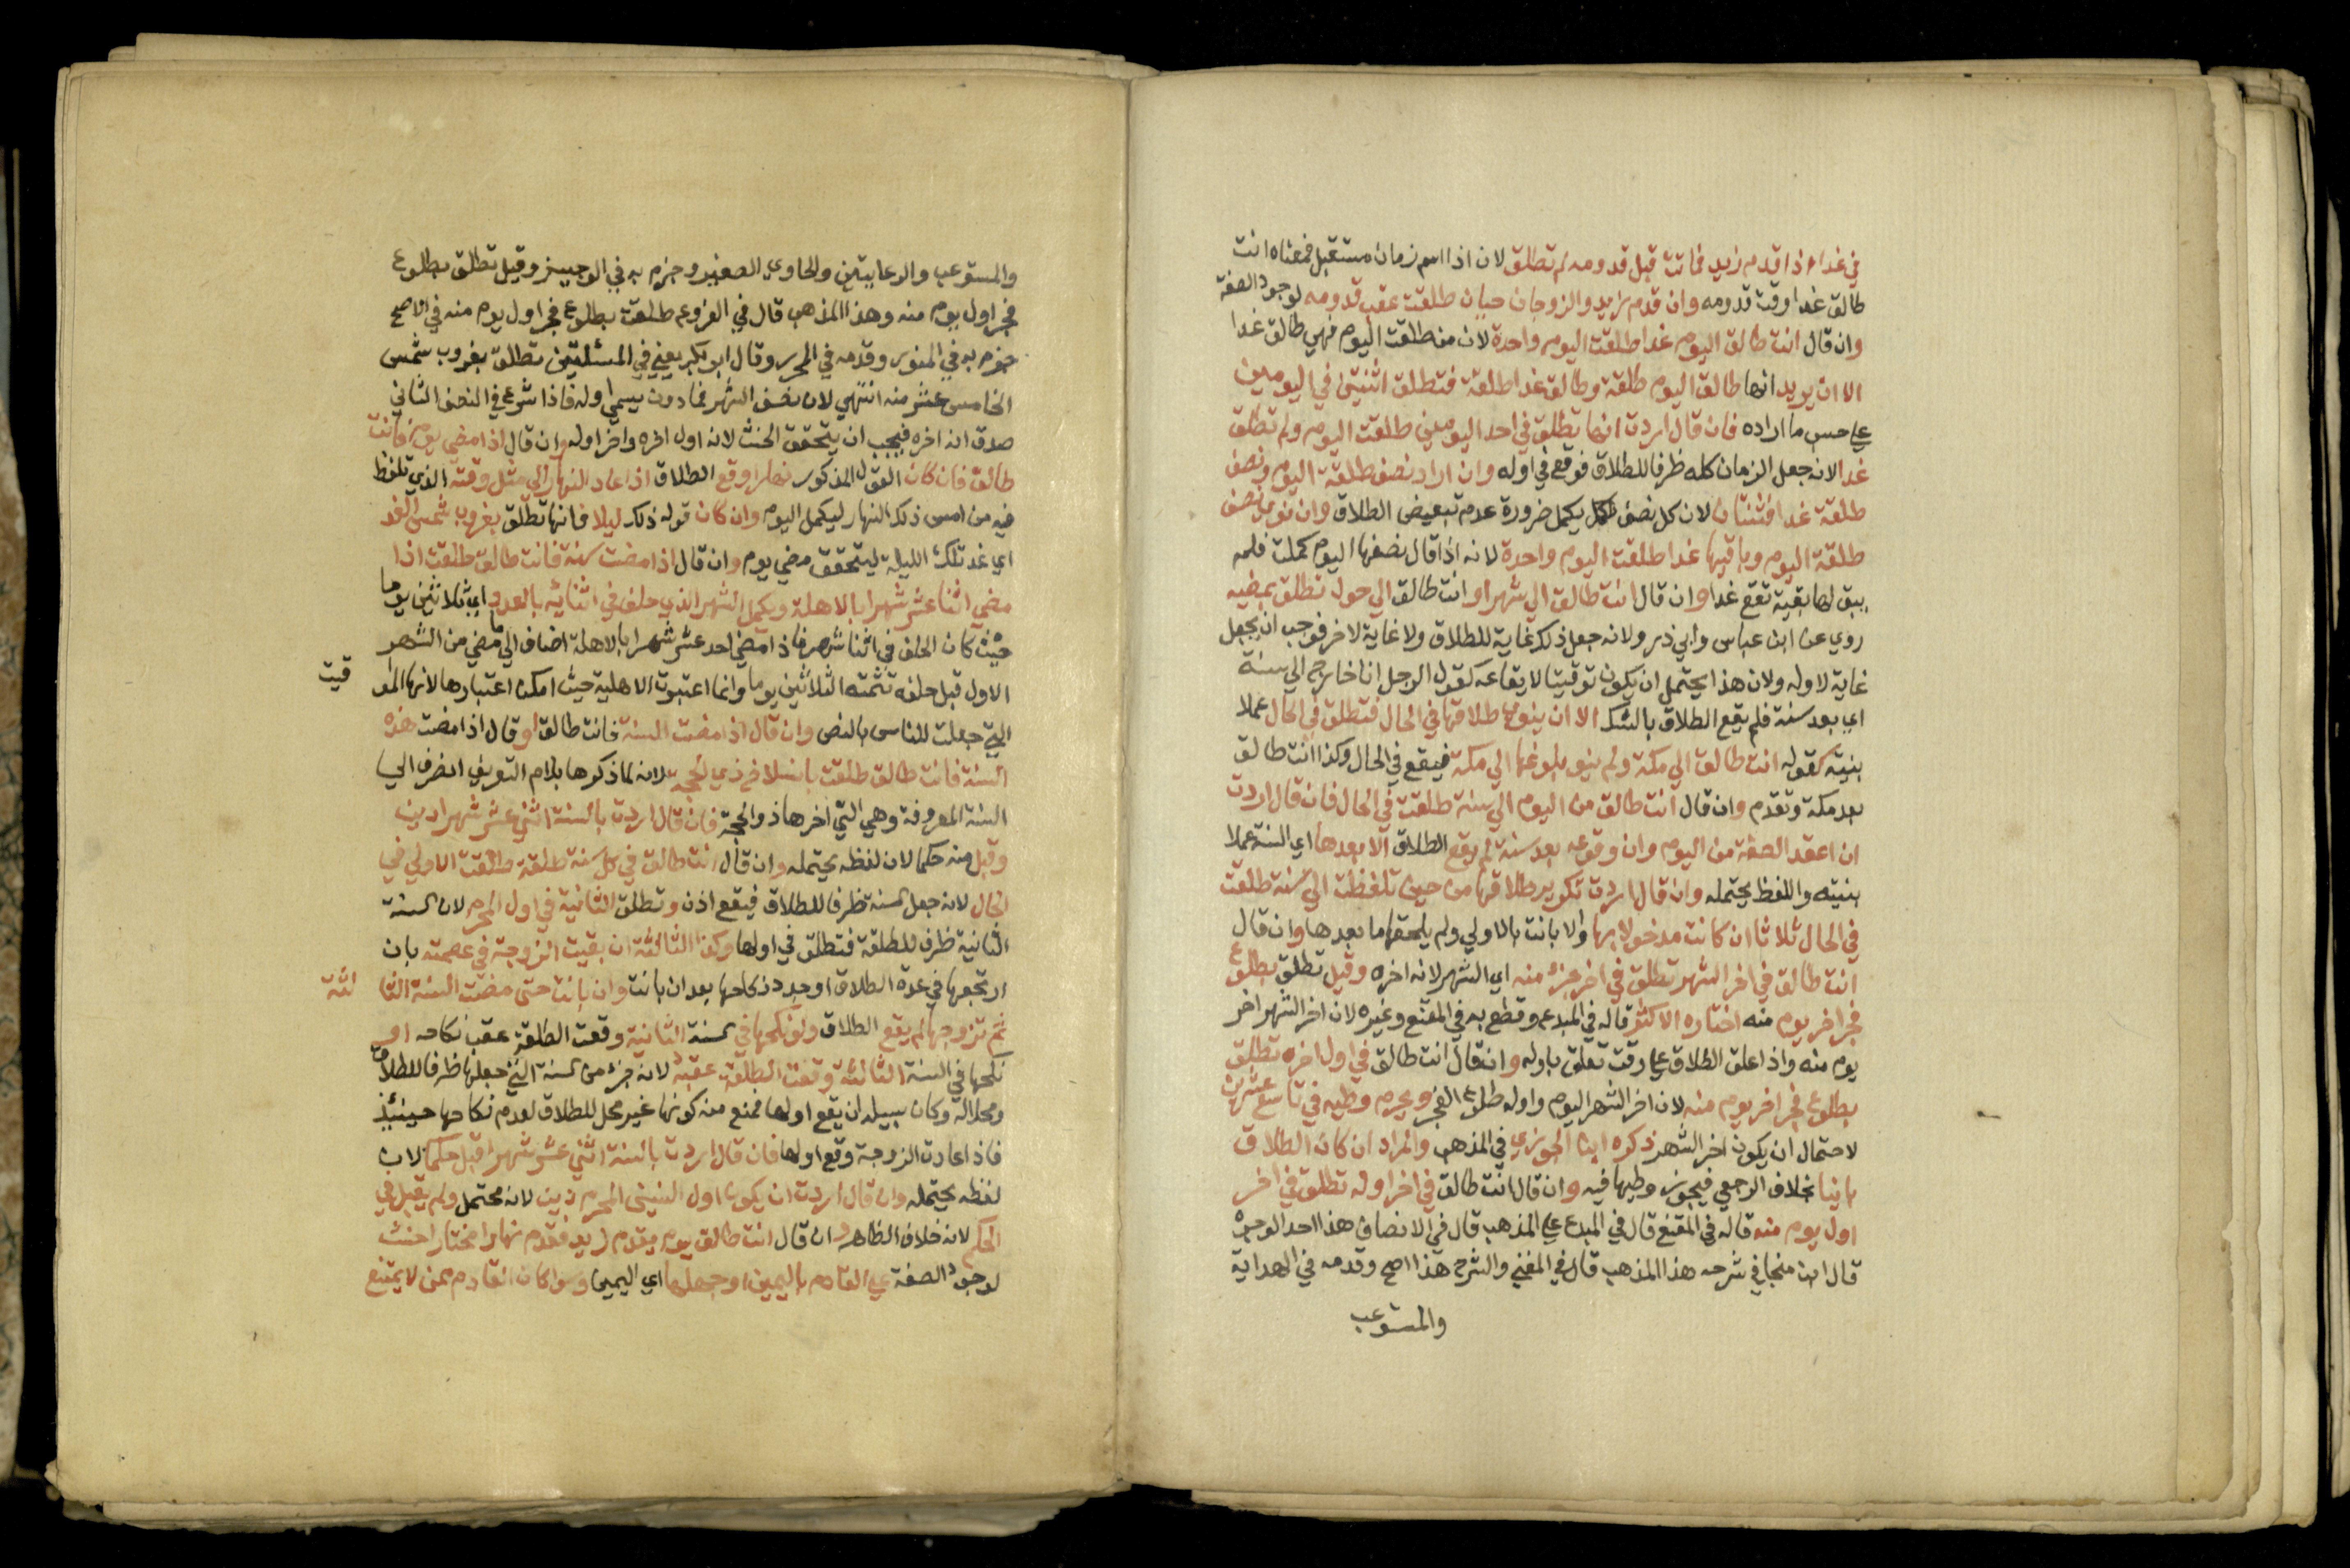 في غد اذا قدم زيد فماتت قبل قدومه لم تطلق لان اذا اسم زمان مستقبل فمعناه انت
طالق غدا وقت قدومه وان قدم زيد والزوجان حيان طلقت عقب قدومه لوجود الصفة
وان قال انت طالق اليوم غدا طلقت اليوم واحدة لان من طلقت اليوم فهي طالق غدا
الا ان يريد انها طالق اليوم طلقة وطالق غدا طلقة فتطلق اثنتين في اليومين
على حسب ما اراده فان قال اردت انها تطلق في احد اليومين طلقت اليوم ولم تطلق
غدا لانه جعل الزمان كله ظرفا للطلاق فوقع في اوله وان اراد نصف طلقة اليوم ونصف
طلقة غدا فثنتان لان كل نصف يكمل ضرورة عدم تبعيض الطلاق وان نوى نصف
طلقة اليوم وباقيها غدا طلقت اليوم واحدة لانه اذا قال نصفها اليوم كملت فلم
يبق لها بقية تقع غدا وان قال انت طالق الى شهر او انت طالق الى حول تطلق بمضيه
روي عن ابن عباس وابي ذر ولانه جعل ذلك غاية للطلاق ولا غاية لاخره فوجب ان يجعل
غاية لاوله ولان هذا يحتمل ان يكون توقيتا لايقاعه كقول الرجل انا خارج الى سنة
اي بعد سنة فلم يقع الطلاق بالشك الا ان ينوي طلاقها في الحال فتطلق في الحال عملا
بنيته كقوله انت طالق الى مكة ولم ينو بلوغها الى مكة فيقع في الحال وكذا انت طالق
بعد مكة وتقدم وان قال انت طالق من اليوم الى سنة طلقت في الحال فان قال اردت
ان اعقد الصفة من اليوم وان وقوعه بعد سنة لم يقع الطلاق الا بعدها اي السنة عملا
بنيته واللفظ يحتمله وان قال اردت تكرير طلاقها من حين تلفظت الى سنة طلقت
في الحال ثلاثا ان كانت مدخولا بها والا بانت بالاولى ولم يلحقها ما بعدها وان قال
انت طالق في اخر الشهر تطلق في اخر جزء منه اي الشهر لانه اخره وقيل تطلق بطلوع
فجر اخر يوم منه اختاره الاكثر قاله في المبدع وقطع به في المقنع وغيره لان اخر الشهر اخر
يوم منه واذا علق الطلاق على وقت تعلق باوله وان قال انت طالق في اول اخره تطلق
بطلوع فجر اخر يوم منه لان اخر الشهر اليوم واوله طلوع الفجر ويحرم وطيه في تاسع عشرين
لاحتمال ان يكون اخر الشهر ذكره ابن الجوزي في المذهب والمراد ان كان الطلاق
باينا بخلاف الرجعي فيجوز وطيها فيه وان قال انت طالق في اخر اوله تطلق في اخر
اول يوم منه قاله في المقنع قال في المبدع على المذهب قال في الانصاف هذا احد الوجوه
قال ابن منجا في شرحه هذا المذهب قال في المغني والشرح هذا اصح وقدمه في الهداية
والمستوعب
والمستوعب والرعايتين والحاوي الصغير وجزم به في الوجيز وقيل تطلق بطلوع
فجر اول يوم منه وهذا المذهب قال في الفروع طلقت بطلوع فجر اول يوم منه في الاصح
جزم به في المنور وقدمه في المحرر وقال ابو بكر يعني في المسئلتين تطلق بغروب شمس
الخامس عشر منه انتهى لان نصف الشهر فما دون يسمى اوله فاذا شرع في النصف الثاني
صدق انه اخره فيجب ان يتحقق الحنث لانه اول اخره واخر اوله وان قال اذا مضى يوم فانت
طالق فان كان القول المذكور نهارا وقع الطلاق اذا عاد النهار الى مثل وقته الذي تلفظ
فيه من امس ذلك النهار ليكمل اليوم وان كان قوله ذلك ليلا فانها تطلق بغروب شمس الغد
اي غد تلك الليلة ليتحقق مضي يوم وان قال اذا مضت سنة فانت طالق طلقت اذا
مضى اثنا عشر شهرا بالاهلة ويكمل الشهر الذي حلف في اثنائه بالعدد اي ثلاثين يوما
حيث كان الحلف في اثنا شهر فاذا مضى احد عشر شهرا بالاهلة اضاف الى ما مضى من الشهر
الاول قبل حلفه تتمته الثلاثين يوما وانما اعتبرت الاهلية حيث امكن اعتبارها لانها المو قيت
التي جعلت للناس بالنص وان قال اذا مضت السنة فانت طالق او قال اذا مضت هذه
السنة فانت طالق طلقت بانسلاخ ذي الحجة لانه لما ذكرها بلام التعريف انصرف الى
السنة المعروفة وهي التي اخرها ذو الحجة فان قال اردت بالسنة اثني عشر شهرا دين
وقبل منه حكما لان لفظه يحتمله وان قال انت طالق في كل سنة طلقة طلقت الاولى في
الحال لانه جعل السنة ظرفا للطلاق فيقع اذن وتطلق الثانية في اول المحرم لان السنة
الثانية ظرف للطلقة فتطلق في اولها وكذا الثالثة ان بقيت الزوجة في عصمته بان
ارتجعها في عدة الطلاق او جدد نكاحها بعد ان بانت وان بانت حتى مضت السنة الثا لثة
ثم تزوجها لم يقع الطلاق ولو نكحها في السنة الثانية وقعت الطلقة عقب نكاحه او
نكحها في السنة الثالثة وقعت الطلقة عقبه لانه جزء من السنة التي جعلها ظرفا للطلاق
ومحلا له وكان سبيله ان يقع اولها فمنع منه كونها غير محل للطلاق لعدم نكاحها حينئذ
فاذا عادت الزوجة وقع اولها فان قال اردت بالسنة اثني عشر شهرا قبل حكما لان
لفظه يحتمله وان قال اردت ان يكون اول السنين المحرم دين لانه محتمل ولم يقبل في
الحكم لانه خلاف الظاهر وان قال انت طالق يوم يقدم زيد فقدم نهارا مختارا حنث
لوجود الصفة علم القادم باليمين او جهلها اي اليمين وسوا كان القادم ممن لا يمتنع